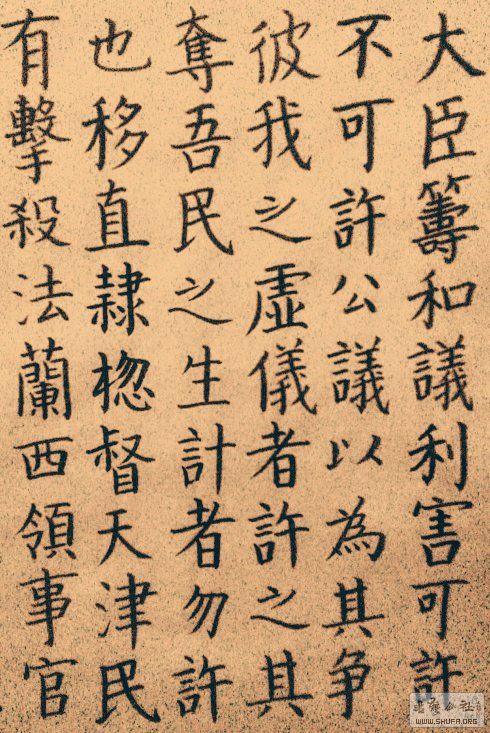 大臣籌和議利害可許
不可許公議以為其爭
彼我之虛儀者許之其
奪吾民之生計者勿許
也移直隸楤督天津民
有擊殺法蘭西領事官
WWW.SHUFA.ORG